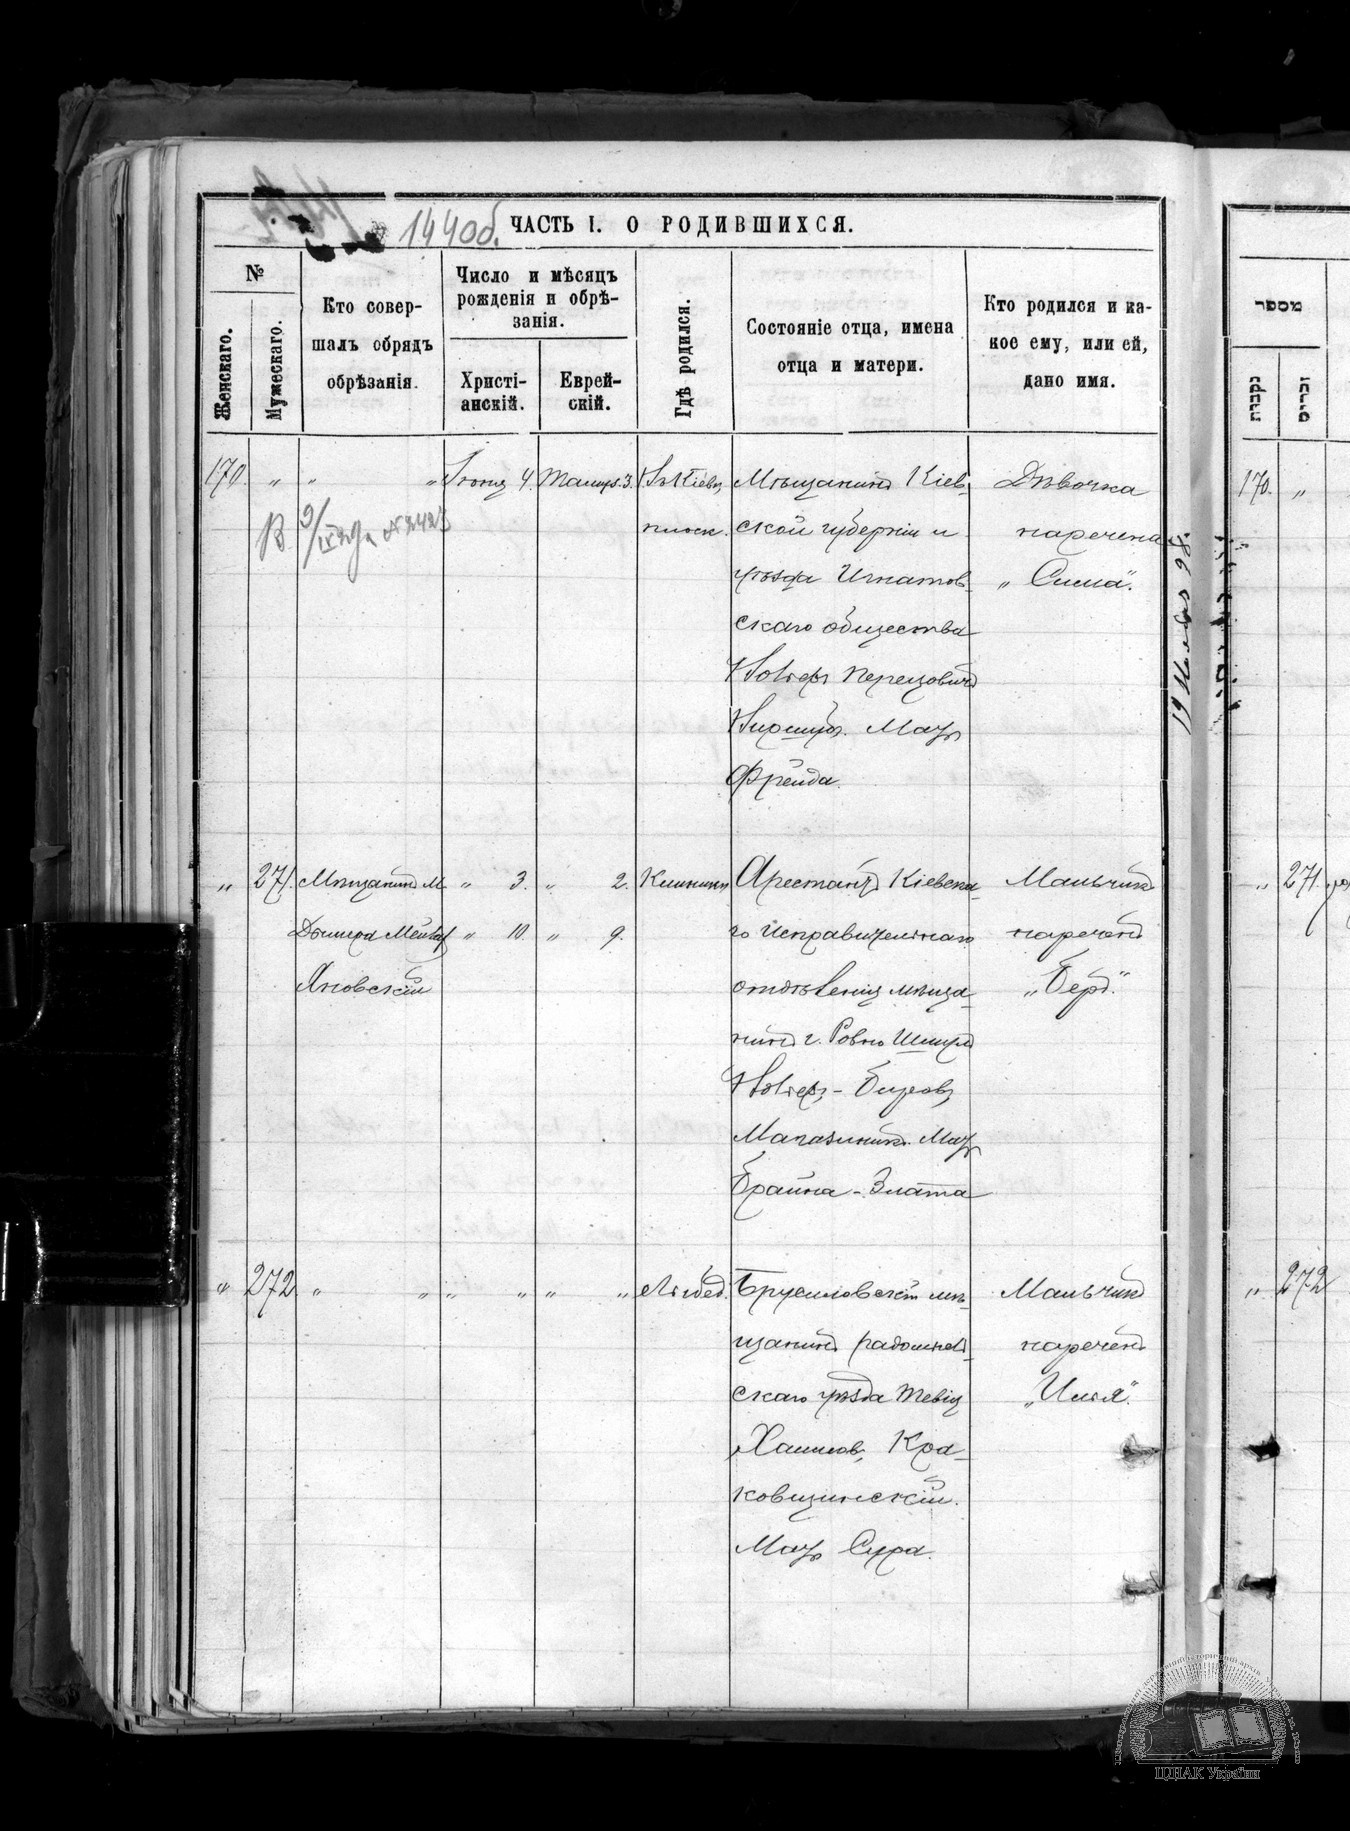 144об.
ЧАСТЬ I. О РОДИВШИХСЯ.
№
Женскаго.
Мужескаго.
Кто совер-
шалъ обрядъ
обрѣзанія.
Число и мѣсяцъ
рожденія и обрѣ-
занія.
Христі-
анскій.
Еврей-
скій.
Гдѣ родился.
Состояніе отца, имена
отца и матери.
Кто родился и ка-
кое ему, или ей,
дано имя.
170. " " " 4. 3.
Мѣщанинъ Кіев-
ской губерніи и
уѣзда Игнатов-
скаго общества
Вольфъ Перецовичъ
Мать
Фрейда.
Дѣвочка
наречена
"Сима".
" 271. Мѣщанинъ М. " 3. " 2.
" 10. " 9.
Яновскій
Арестантъ Кіевска-
го исправительнаго
отдѣленія мѣща-
нинъ г. Ровно Шмуль
Вольфъ-Беровъ
Магазинникъ. Мать
Брайна-Злата
Мальчикъ
нареченъ
"Беръ".
" 272 " " " " " " Лыбед.
Брусиловскій мѣ-
щанинъ радомысль-
скаго уѣзда Тевія
Хаимовъ Кра-
ковщинскій.
Мать Сура.
Мальчикъ
нареченъ
"Илья".
מספר
נקבות
זכרים
170. "
" 271.
" 272
ЦДІАК України